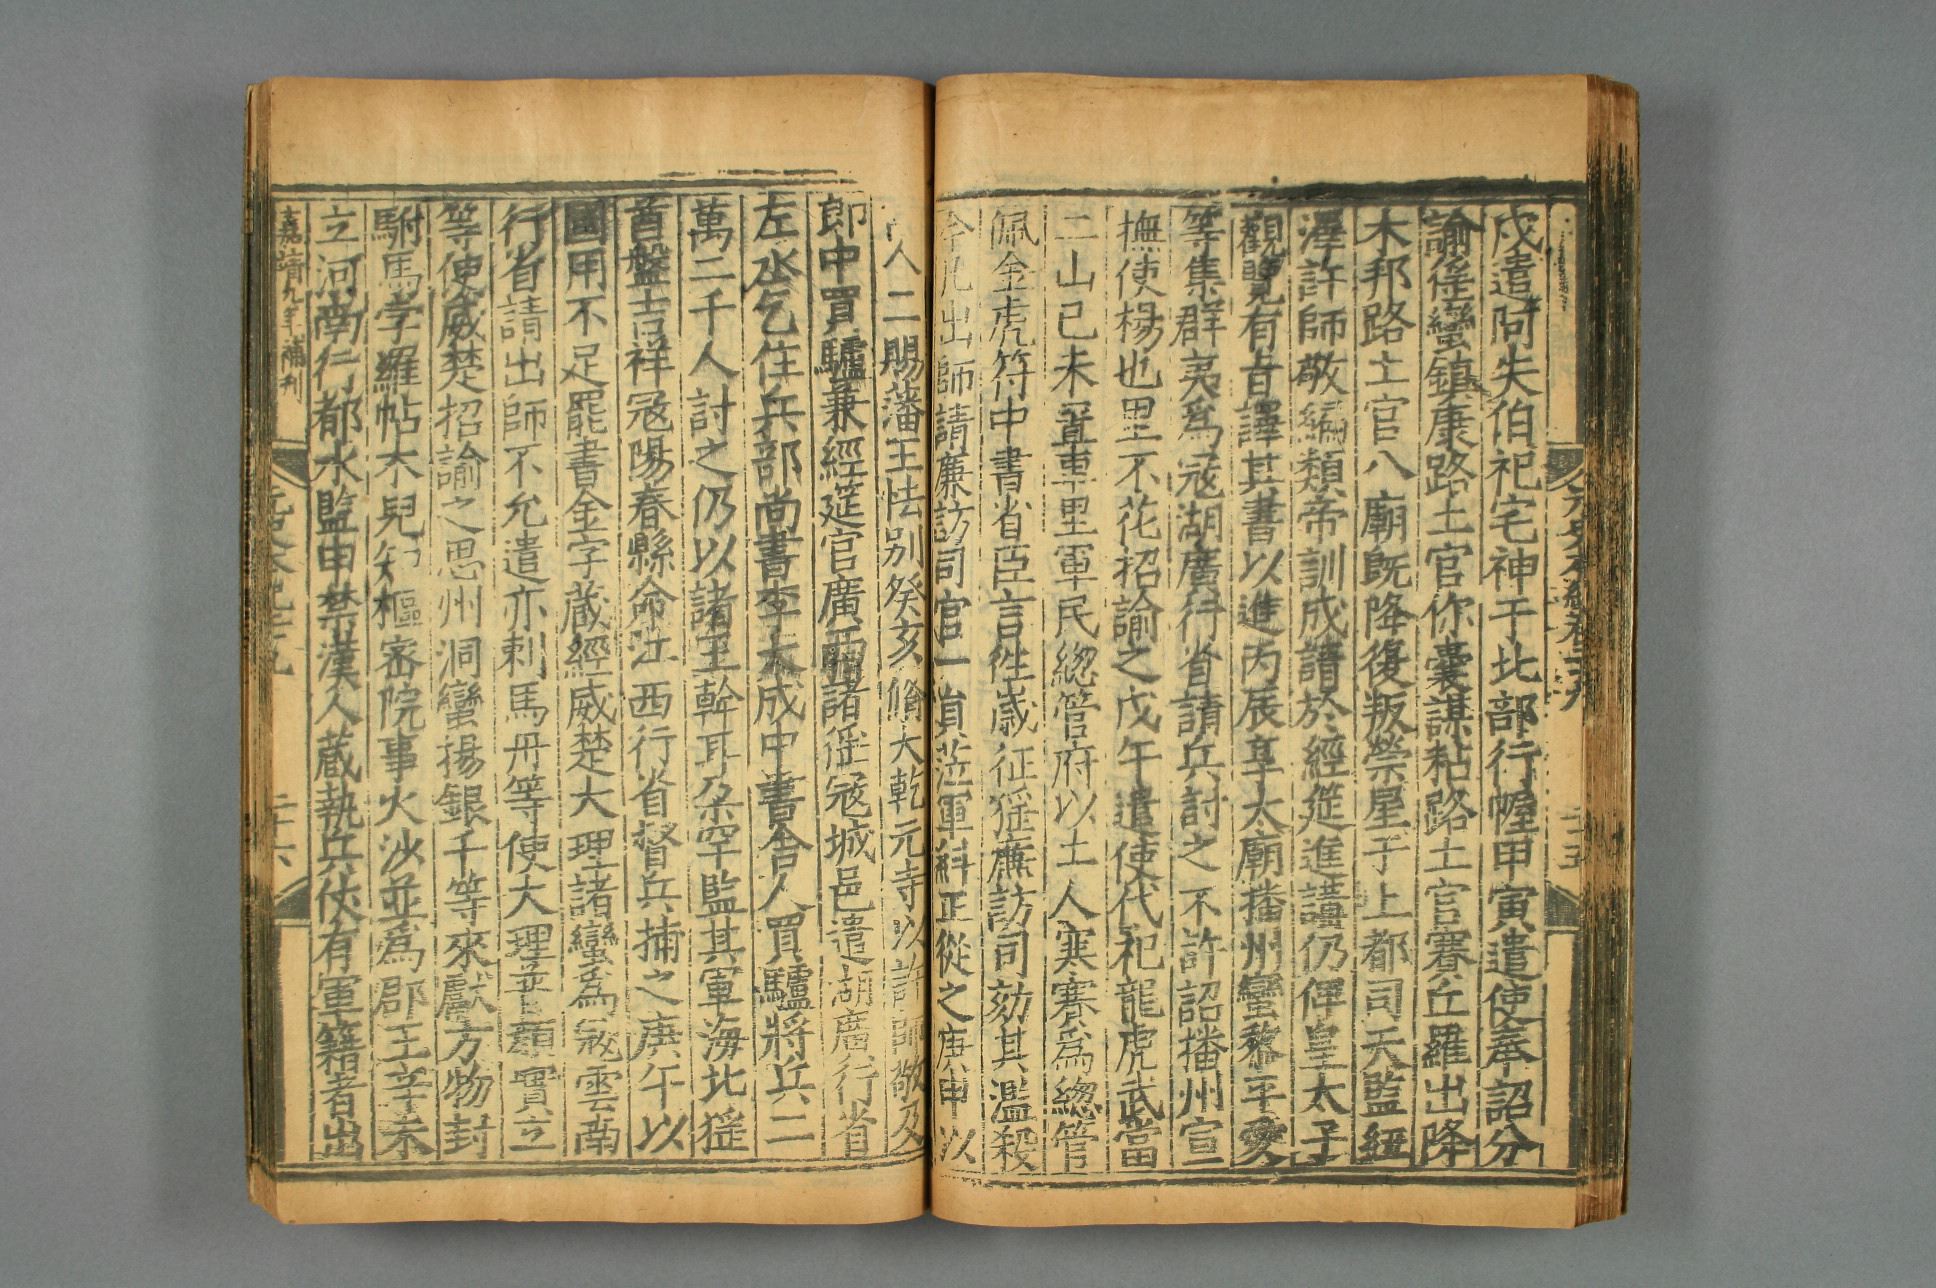 元史本紀卷二十九
二十五
戍遣阿失伯祀宅神于北部行幄甲寅遣使奉詔分
諭徭蠻鎮康路土官你囊謀粘路土官賽丘羅出降
木邦路土官八廟既降復叛榮星于上都司天監紐
澤許師敬編類帝訓成請於經筵進講仍俾皇太子
觀覽有旨譯其書以進丙辰享太廟播州蠻黎平愛
等集群夷爲寇湖廣行省請兵討之不許詔播州宣
撫使楊也里不花招諭之戊午遣使代祀龍虎武當
二山己未置車里軍民緫管府以土人寒賽爲緫管
佩金虎符中書省臣言徃歲征徭廉訪司劾其濫殺
今凡出師請廉訪司官一員蒞軍糾正從之庚申以
人二賜潘王怯别癸亥脩大乾元寺以許師敬及
郎中買驢兼經筵官廣西諸徭寇城邑遣湖廣行省
左丞乞住兵部尚書李大成中書舎人買驢將兵二
萬二千人討之仍以諸王斡耳朶罕監其軍海北徭
酋盤吉祥寇陽春縣命江西行省督兵捕之庚午以
國用不足罷書金字藏經威楚大理諸蠻爲寇雲南
行省請出師不允遣亦剌馬丹等使大理普顏實立
等使威楚招諭之思州洞蠻楊銀千等來獻方物封
駙馬孛羅帖木兒知樞密院事火沙並爲郡王辛未
立河南行都水監申禁漢人藏執兵仗有軍籍者出
嘉靖九年補刊
二十六